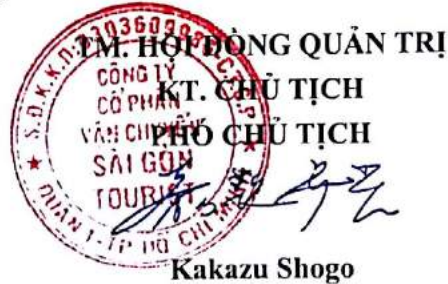 TM. HỘI ĐỒNG QUẢN TRỊ
KT. CHỦ TỊCH
PHÓ CHỦ TỊCH
CÔNG TY
CỔ PHẦN
VẬN CHUYỂN
SÀI GÒN
TOURIST
QUẬN 1-TP HỒ CHÍ MINH
Kakazu Shogo